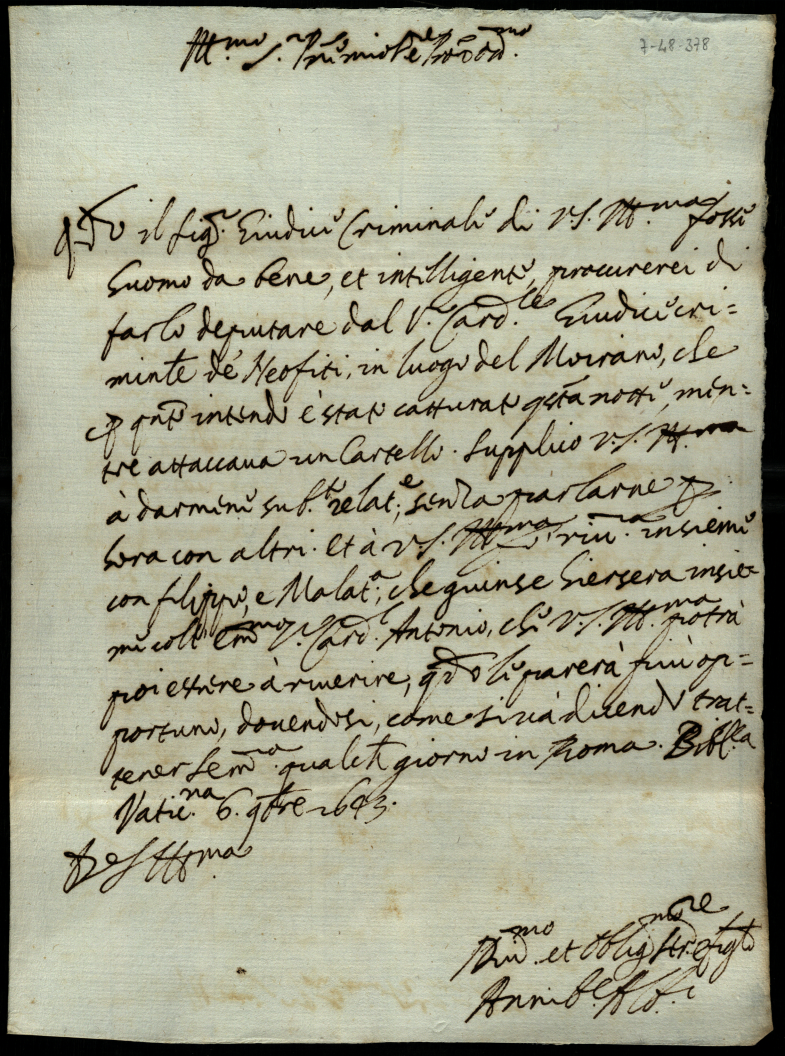 Ill.mo S.r P.rone mio
7-48-378
q.do il Sig.r Giudice Criminale di V.S. Ill.ma fosse
huomo da bene, et intelligente, procurerei di
farlo deputare dal S.r Card.le Giudice cri=
min.le de' Neofiti, in luogo del Moirano, che
p q.nto intendo è stato catturato q.sta notte, men=
tre attaccaua un Cartello. Supplico V.S. Ill.ma
à darmene sub.to relat.e, senza parlarne p
hora con altri. Et à V.S. Ill.ma fo riu.a insieme
con filippo, e Malat.a, che giunse hiersera insie=
me coll' Em.mo S.r Card.l Antonio, che V.S. Ill.ma potrà
poi essere à riuerire, q.do le parerà più op=
portuno, douendosi, come si và dicendo trat=
tener S. Em.a qualche giorno in Roma. Bibl.ca
Vatic.na 6. 9bre 1643.
Di V.S. Ill.ma
et oblig.mo
Annib.e Alb.i